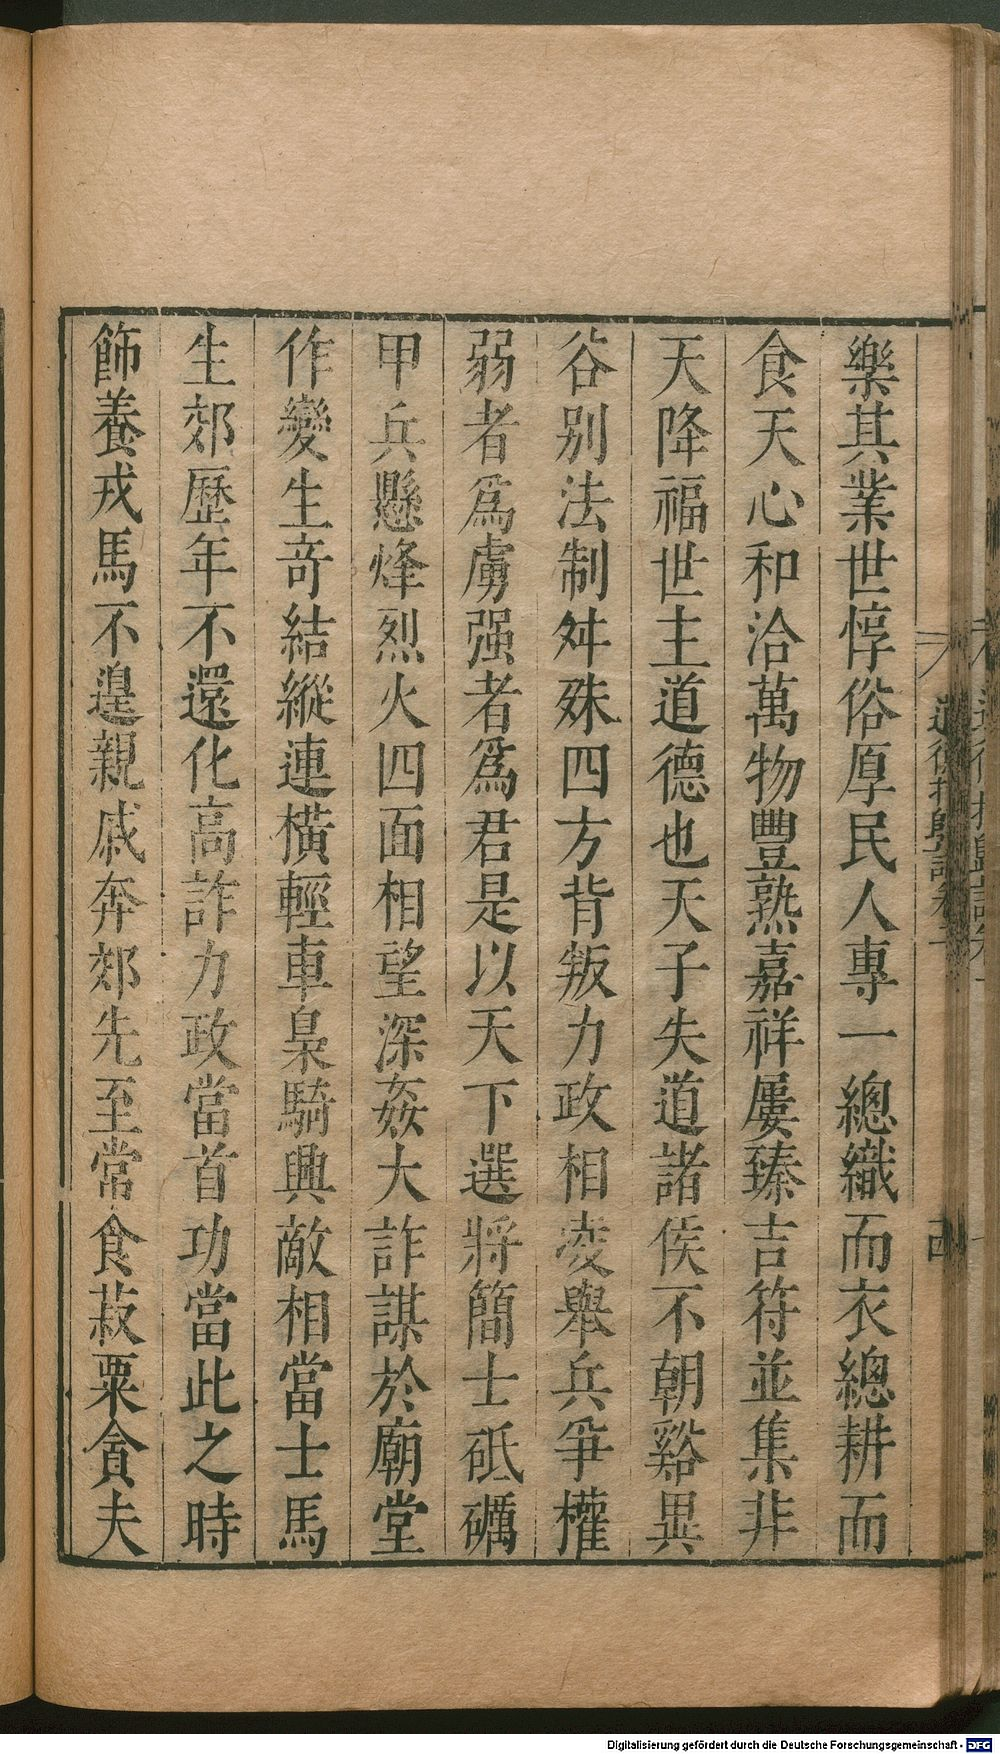 樂其業世惇俗厚民人專一總織而衣總耕而
食天心和洽萬物豐熟嘉祥屢臻吉符並集非
天降福世主道德也天子失道諸侯不朝谿異
谷別法制舛殊四方背叛力政相凌舉兵爭權
弱者爲虜强者爲君是以天下選將簡士砥礪
甲兵懸烽烈火四面相望深姦大詐謀於廟堂
作變生竒結縱連橫輕車梟騎興敵相當士馬
生郊歷年不還化高詐力政當首功當此之時
飾養戎馬不遑親戚奔郊先至常食菽粟貪夫
Digitalisierung gefördert durch die Deutsche Forschungsgemeinschaft - DFG